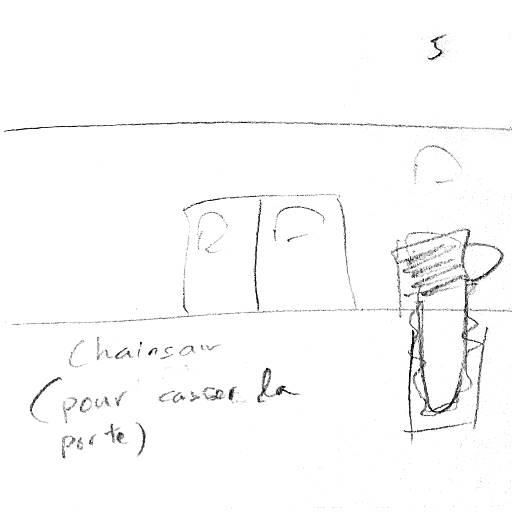 5
Chainsaw
(pour casser la
porte)